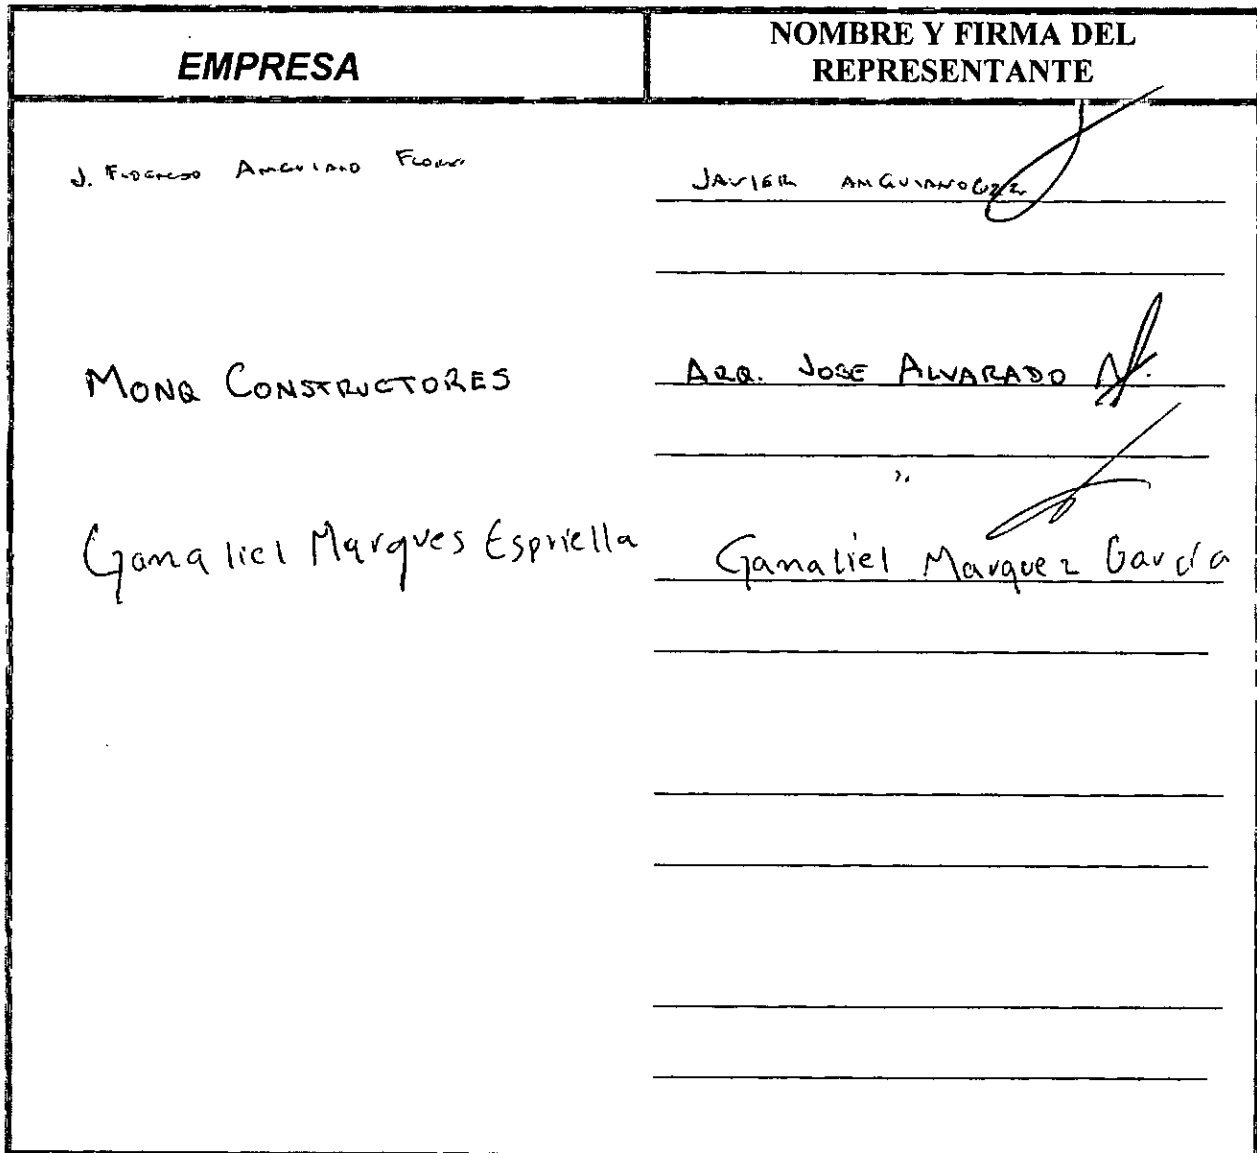 EMPRESA
NOMBRE Y FIRMA DEL
REPRESENTANTE
J. Anguiano
JAVIER ANGUIANO
MONQ CONSTRUCTORES
ARQ. JOSE ALVARADO
Gamaliel Marques Espriella
Gamaliel Marquez García